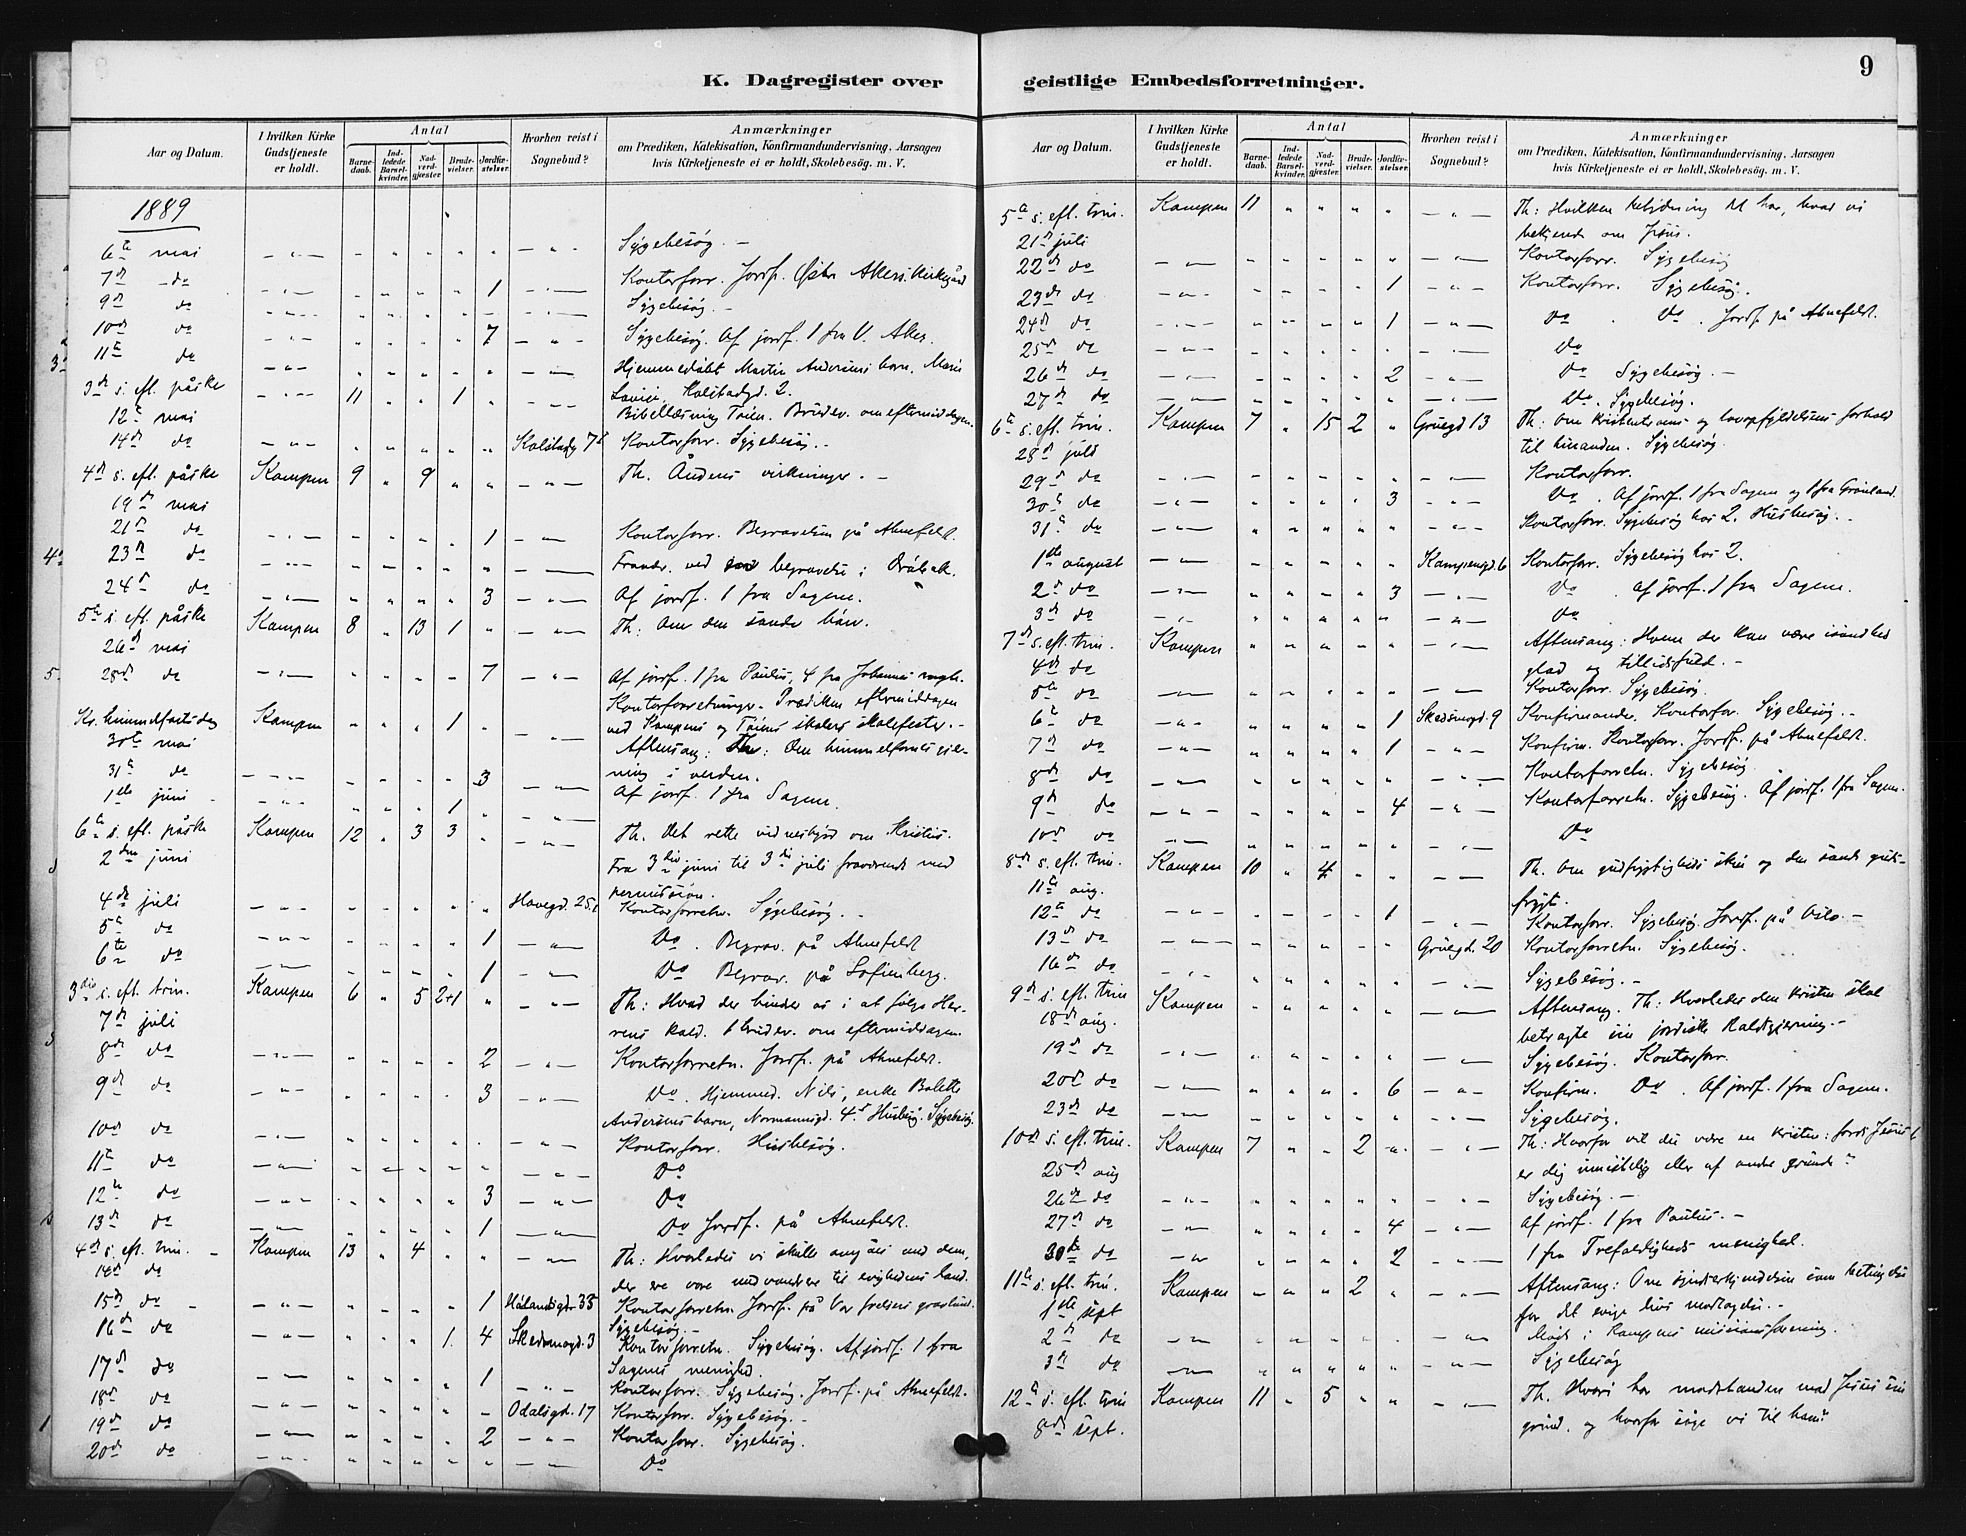 K. Dagregister over
geistlige Embedsforretninger.
9
Aar og Datum.
I hvilken Kirke Gudstjeneste er holdt.
Antal
Barnedaab.
Indledede Barselkvinder.
Nadverdgjæster.
Brudevielser.
Jordfæstelser.
Hvorhen reist i Sognebud?
Anmærkninger
om Prædiken, Katekisation, Konfirmandundervisning, Aarsagen
hvis Kirketjeneste ei er holdt, Skolebesög. m. V.
1889
6te mai Sygebesög. –
7d do 1 Kontorforr. Jordf. Østre Akers kirkegård
9d do Sygebesög. –
10d do 7 Sygebesög. Af jordf. 1 fra V. Aker.
11te do Hjemmedöbt Martin Andersens barn, Marie
3die s. eft. påske 11 1 Kolstadgd. 2.
12te mai Bibellæsning Tøien. Brudev. om eftermiddagen.
14d do Kolstadg 7 Kontorforr. Sygebesög. –
4d s. eft. påske Kampen 9 9 Th. Åndens virkninger. –
19d mai
21d do 1 Kontorforr. Begravelse på Ahnefeldt.
23d do Fravær. ved begravelse i Dröbak.
24d do 3 Af jordf. 1 fra Sagene.
5te s. eft. påske Kampen 8 13 1 Th: Om den sande bön.
26d mai
28d do 7 Af jordf. 1 fra Paulus, 4 fra Johannes mgh.
Kontorforretninger. Prædiken eftermiddagen
Kr. himmelfartsdag Kampen 1 ved Kampens og Töiens skolers skolefester. –
30te mai Aftensang: Th: Om himmelfarnes gjer-
31te do 3 ning i verden.
1ste juni 1 Af jordf. 1 fra Sagene.
6te s. eft. påske Kampen 12 3 3 Th. Det rette vidnesbyrd om Kristus.
2den juni Fra 3die juni til 3die juli fraværende med
permission.
4de juli Havegd. 25 Kontorforretn. Sygebesög. –
5te do 1 Do. Begrav. på Ahnefeldt
6te do 1 Do Begrav. på Sofienberg.
3die s. eft. trin. Kampen 6 5 2+1 Th: Hvad der hindrer os i at fölge Her-
7d juli rens kald. 1 brudev. om eftermiddagen.
8de do 2 Kontorforretn. Jordf. på Ahnefeldt.
9d do 3 Do. Hjemmed. Nils, enke Bolette
Andersens barn, Normannsgd. 4. Husbesög. Sygebesög.
10d do Kontorforr. Husbesög.
11te do Do
12te do 3 Do
13d do 1 Do Jordf. på Ahnefeldt.
4d s. eft. trin. Kampen 13 4 Th: Hvorledes vi skulle omgåes med dem,
14d do der ere vore medvandrere til evighedens land.
15d do 1 Hålandsgd. 35 Kontorforretn. Jordf. på Vor frelsers gravlund.
Sygebesög. –
16d do 1 4 Skedsmogd. 3 Kontorforretn. Sygebesög. Af jordf. 1 fra
Sagenes menighed.
17d do 1 Kontorforr. Sygebesög. Jordf. på Ahnefeldt.
18d do Odalsgd. 17 Kontorforr. Sygebesög. –
19d do 2 Kontorforr. Sygebesög.
20d do Do
Aar og Datum.
I hvilken Kirke Gudstjeneste er holdt.
Antal
Barnedaab.
Indledede Barselkvinder.
Nadverdgjæster.
Brudevielser.
Jordfæstelser.
Hvorhen reist i Sognebud?
Anmærkninger
om Prædiken, Katekisation, Konfirmandundervisning, Aarsagen
hvis Kirketjeneste ei er holdt, Skolebesög. m. V.
5te s. eft. trin. Kampen 11 Th: Hvilken betydning det har, hvad vi
21d juli bekjende om Jesus.
22d do Kontorforr. Sygebesög
23d do 1 Kontorforr. Sygebesög.
24d do 1 Do. Do. Jordf. på Ahnefeldt.
25d do Do
26d do 2 Do Sygebesög. –
27d do Do. Sygebesög.
6te s. eft. trin. Kampen 7 15 2 Gruegd 13 Th: Om kristentroens og lovopfyldelsens forhold
28d juli til hinanden. Sygebesög.
29d do Kontorforr.
30te do 3 Do. Af jordf. 1 fra Sagene og 1 fra Grönland.
31te do Kontorforr. Sygebesög hos 2. Husbesög. –
1ste august Kampensgd. 6 Kontorforr. Sygebesög hos 2.
2d do 3 Do. Af jordf. 1 fra Sagene.
3d do Do
7d s. eft. trin. Kampen Aftensang: Hvem der kan være isandhed
4de do glad og tillidsfuld. –
5te do Kontorforr. Sygebesög.
6te do 1 Skedsmogd. 9 Konfirmander. Kontorforr. Sygebesög. –
7d do 1 Konfirm. Kontorforr. Jordf. på Ahnefeldt.
8de do Kontorforretn. Sygebesög
9d do 4 Kontorforretn. Sygebesög. Af jordf. 1 fra Sagene.
10d do Do
8de s. eft. trin. Kampen 10 4 Th. Om gudfrygtigheds skin og den sande guds-
11te aug. frygt.
12te do 1 Kontorforr. Sygebesög. Jordf. på Oslo. –
13d do Gruegd. 20 Kontorforretn. Sygebesög.
16d do Sygebesög. –
9d s. eft. trin Kampen Aftensang. Th: Hvorledes den kristne skal
18d aug. betragte sin jordiske kaldsgjerning. –
19d do Sygebesög. Kontorforr.
20d do 6 Konfirm. Do. Af jordf. 1 fra Sagene.
23d do Sygebesög.
10d s. eft. trin. Kampen 7 2 Th: Hvorfor vil du være en kristen: fordi Jesus
25d aug er dig umistelig eller af andre grunde?
26d do Sygebesög. –
27d do 4 Af jordf. 1 fra Paulus. –
30te do 2 1 fra Trefoldigheds menighed.
11te s. eft. trin. Kampen 2 Aftensang: Om synderkjendelsen som betingelse
1ste sept for det evige livs modtagelse. –
2d do Möde i Kampens missionsforening.
3d do Sygebesög
12te s. eft. trin Kampen 11 5 Th. Hvori har modstanden mod Jesus sin
8de sept. grund, og hvorfor söge vi til ham?